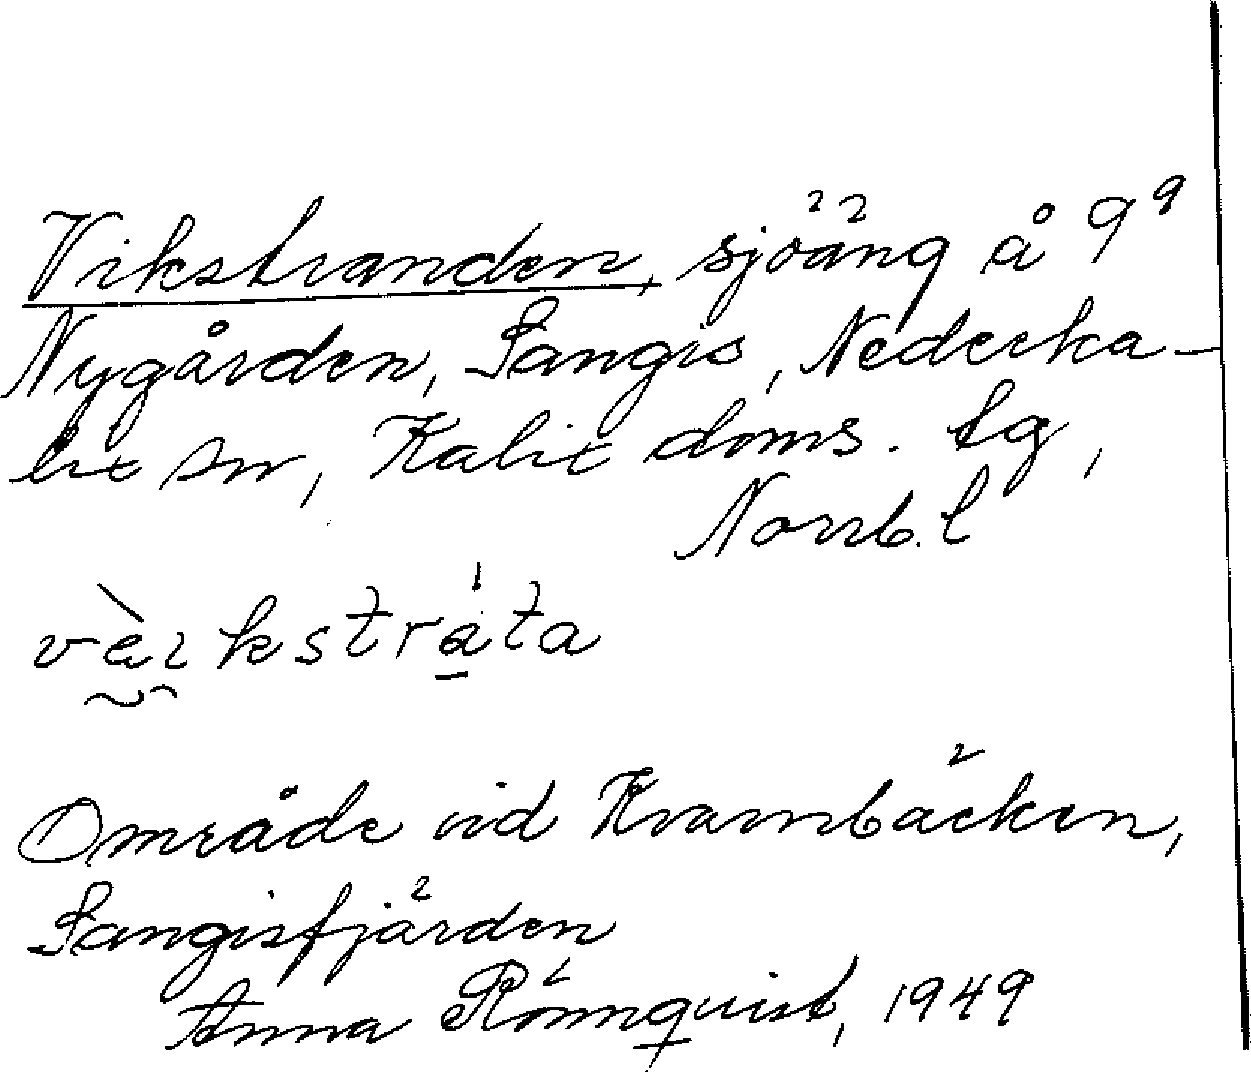 Vikstranden, sjöäng å 9⁹
Nygården, Sangis, Nederka-
lix sn, Kalix doms. lg,
Norrb. l
vèikstráta
Område vid Krambäcken,
Sangisfjärden
Anna Rönnquist, 1949